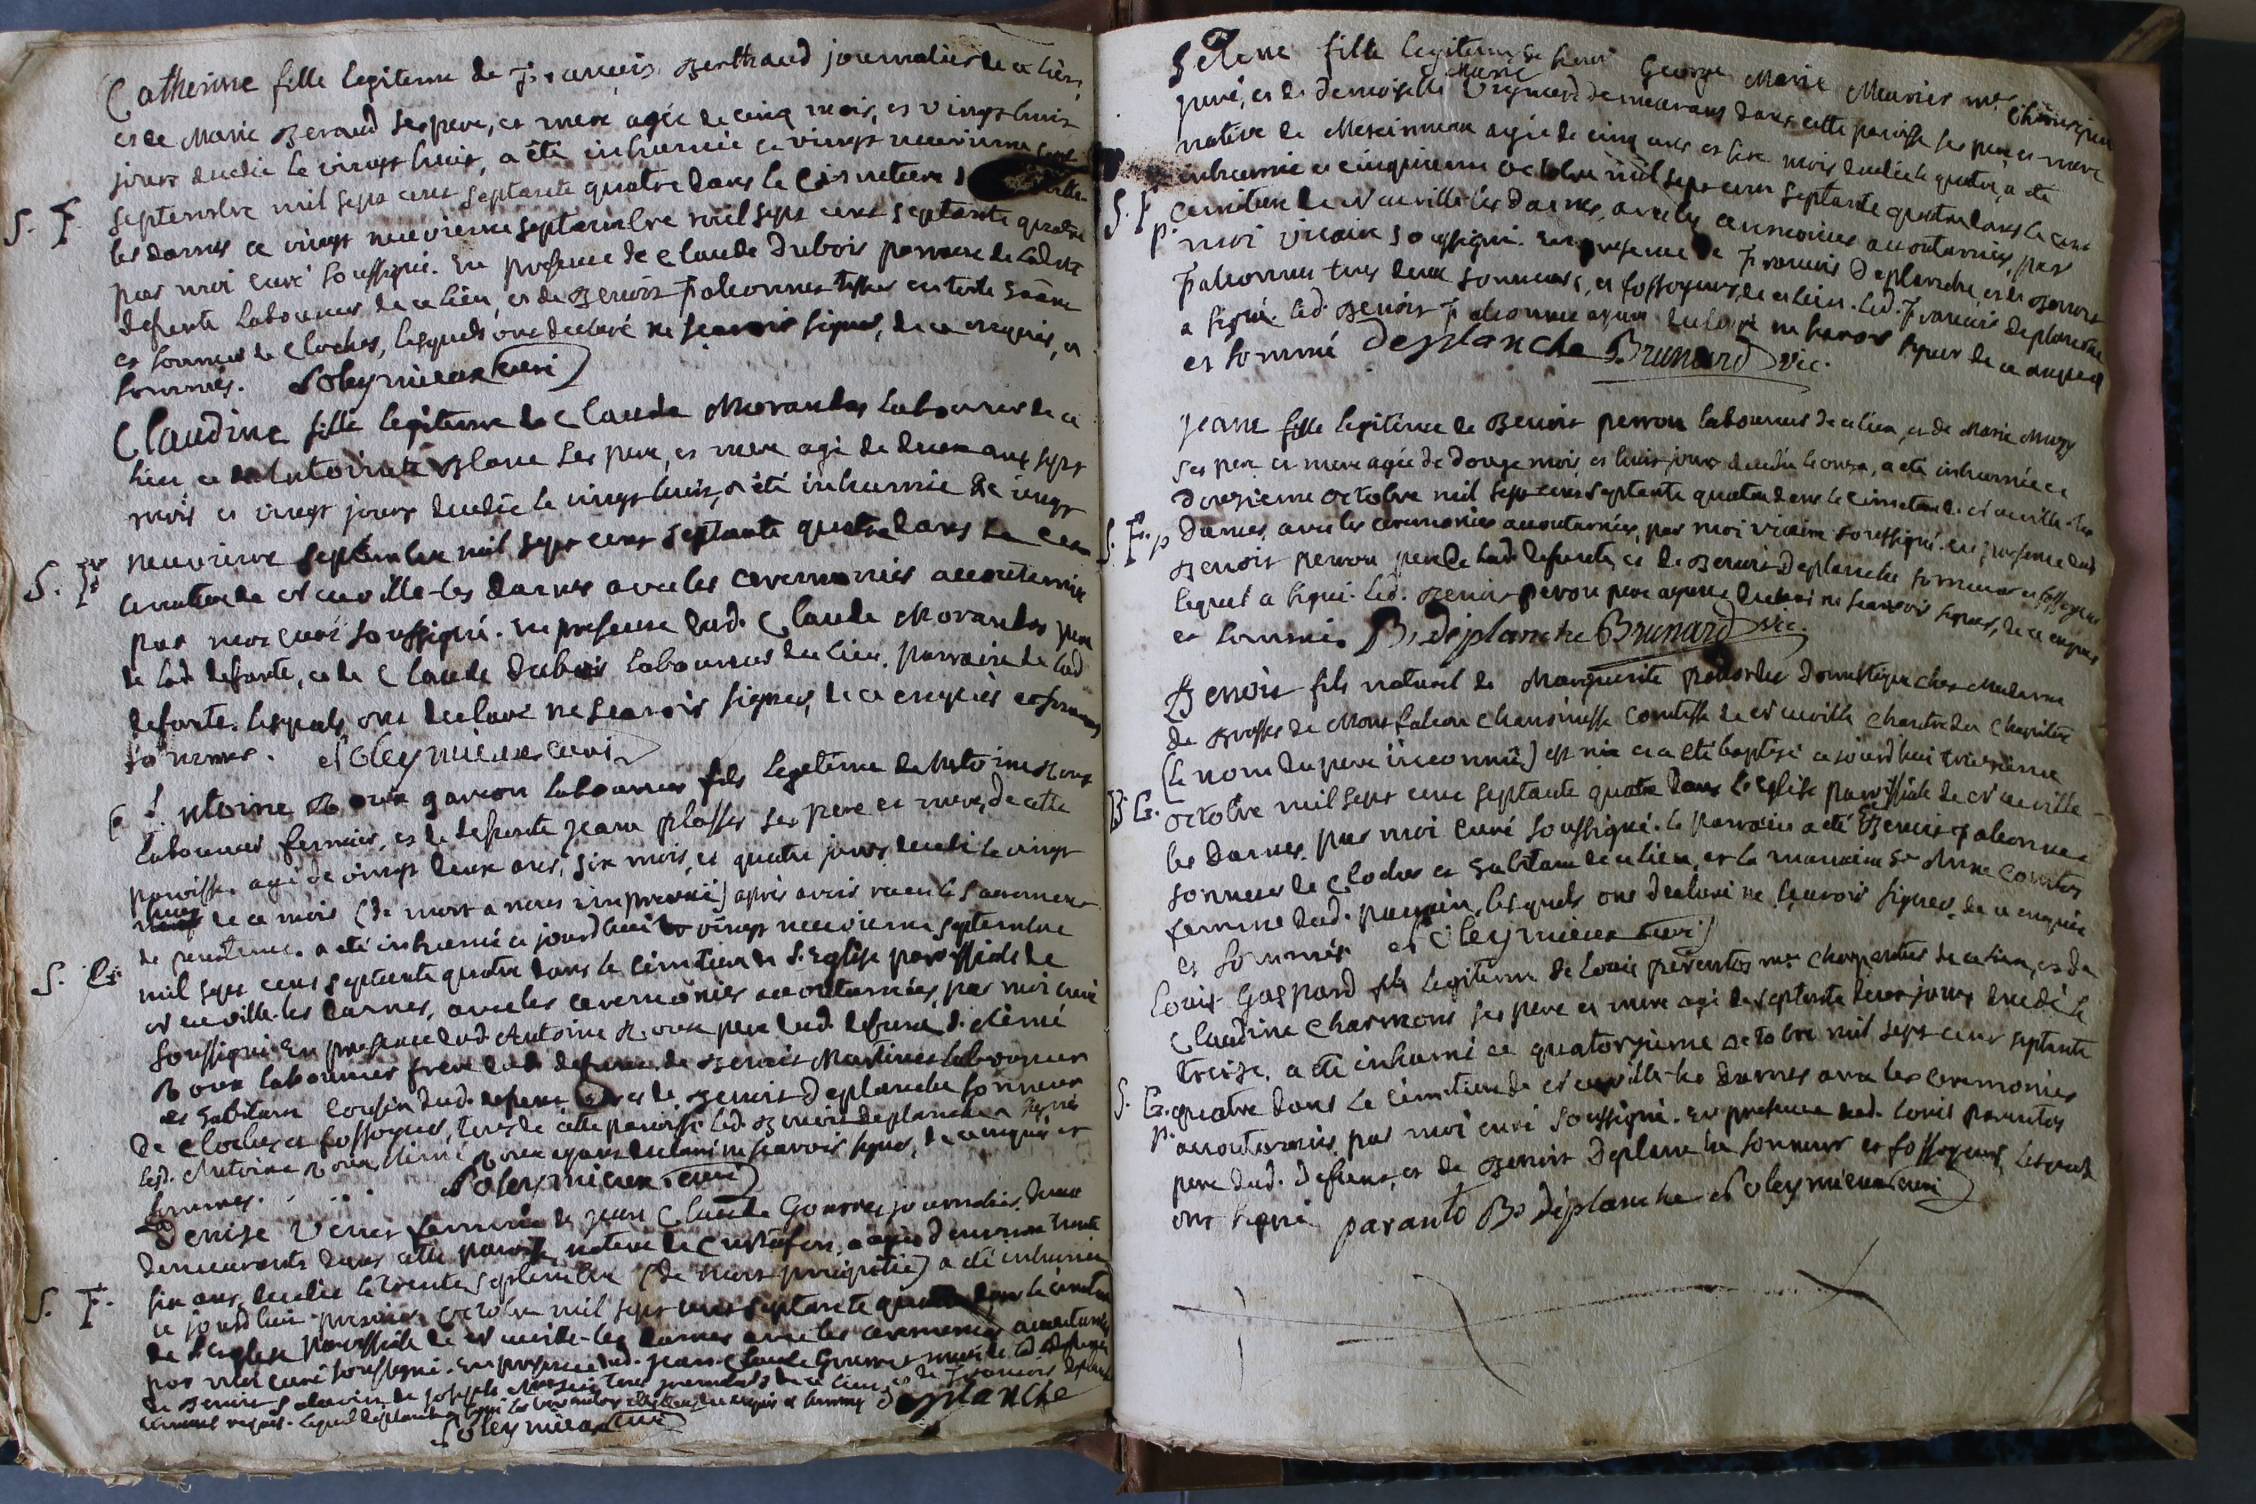 Catherine fille legitime de François Berthaud journalier de ce lieu,
et de Marie Beraud ses pere, et mere agée de cinq mois, et vingt huit
jours decedée le vingt huit, a été inhumée ce vingt neuvieme
septembre mil sept cent septante quatre dans le Cimetiere
S. F. les dames ce vingt neuvieme septembre mil sept cent septante quatre
par moi curé soussigné. En presence de Claude Dubois parrain de ladite
defunte laboureur de ce lieu, et de Benoit Falconnet
et sonneur de cloches, lesquels ont declaré ne scavoir signer, de ce enquis, et
sommés. Soleymieux curé
Claudine fille legitime de Claude Morandas laboureur de ce
lieu et de Antoinette Blanc ses pere, et mere agé de deux ans sept
mois et vingt jours decedée le vingt huit, a été inhumée le vingt
neuvieme septembre mil sept cent septante quatre dans le
S. F. cimetiere de Neuville-les dames avec les ceremonies accoutumées
par moi curé soussigné. En presence dud. Claude Morandas pere
de lad. defunte, et de Claude Dubois laboureur du lieu, parrain de lad
defunte. lesquels ont declaré ne scavoir signer, de ce enquis et
sommés. Soleymieux curé
Antoine Roux garcon laboureur fils legitime de Antoine Roux
laboureur fermier, et de defunte Jeanne ses pere et mere, de cette
paroisse agé de vingt deux ans, six mois, et quatre jours, decedé le vingt
huit de ce mois (de mort a nous imprevué) après avoir recu le sacrement
de penitence. a été inhumé ce jourd'hui vingt neuvieme septembre
S. G. mil sept cent septante quatre dans le cimetiere de l'Eglise paroissiale de
Neuville-les dames, avec les ceremonies accoutumées, par moi curé
soussigné En presence dud Antoine Roux pere dud. defunt, d'Aimé
Roux laboureur frere dud. defunt de Benoit Martinet laboureur
et habitant Cousin dud. defunt et de Benoit Deplanche sonneur
de cloches, et fossoyeur, tous de cette paroisse led. Benoit deplanche a signé
led. Antoine Roux, Aimé Roux ayant declaré ne scavoir signer, de ce enquis et
sommés. Soleymieux curé
Denise femme de Jean Claude journalier. Deux
demeurants dans cette paroisse, native de agée d'environ trente
six ans, decedée le trente septembre (de mort precipitée) a été inhumée
S. F. ce jourd'hui premier octobre mil sept cent septante quatre dans le cimetiere
de l'Eglise paroissiale de Neuville-les dames avec les ceremonies accoutumées
par moi curé soussigné. En presence dud. Jean Claude mari de lad. defunte
de Benoit de Joseph tous journaliers de ce lieu, et de François deplanche
deplanche
Soleymieux curé
Helene fille legitime de sieur George Marie Meunier me Chirurgien
juré, et de demoiselle Marie demeurants dans cette paroisse ses pere et mere
native de agée de cinq ans et six mois decedée le quatre, a été
inhumée ce cinquieme octobre mil sept cent septante quatre dans le
S. F. cimetiere de Neuville les dames, avec les ceremonies accoutumées, par
p moi vicaire soussigné. En presence de François Deplanche, et de Benoit
Falconnet tous deux sonneurs, et fossoyeurs de ce lieu. Led. François deplanche
a signé led. Benoit Falconnet ayant declaré ne scavoir signer de ce enquis
et sommé Desplanche Brunard vic.
Jeane fille legitime de Benoit perrou laboureur de ce lieu, et de Marie
ses pere et mere agée de douze mois et huit jours decedée le onze, a été inhumée ce
douzieme octobre mil sept cent septante quatre dans le cimetiere de Neuville-les
S. F. p dames, avec les ceremonies accoutumées, par moi vicaire soussigné. En presence dud
Benoit perrou pere de lad. defunte, et de Benoit Deplanche sonneur et fossoyeur
lequel a signé. led. Benoit perrou pere ayant declaré ne scavoir signer, de ce enquis
et sommé. B. deplanche Brunard vic.
Benoit fils naturel de Marguerite domestique chez Madame
de Brosses de Montfalcon Chanoinesse Comtesse de Neuville Chantre du Chapitre
(le nom du pere inconnu) est né et a été baptisé ce jourd'hui treizieme
B. G. octobre mil sept cent septante quatre dans l'Eglise paroissiale de Neuville-
les dames, par moi curé soussigné. le parrain a été Benoit Falconnet
sonneur de cloches et habitant de ce lieu, et la marraine Anne
femme dud. parrain, lesquels ont declaré ne scavoir signer, de ce enquis
et sommés Soleymieux curé
Louis Gaspard fils legitime de Louis parentos me charpentier de ce lieu, et de
Claudine Charmont ses pere et mere agé de septante deux jours decedé le
treize, a été inhumé ce quatorzieme octobre mil sept cent septante
S. G. quatre dans le cimetiere de Neuville-les dames avec les ceremonies
p. accoutumées par moi curé soussigné. En presence dud. Louis parentos
pere dud. defunt, et de Benoit Deplanche sonneur et fossoyeur, lesquels
ont signé. paranto B deplanche Soleymieux curé